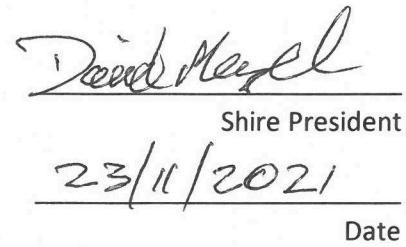 David
Shire President
23/11/2021
Date